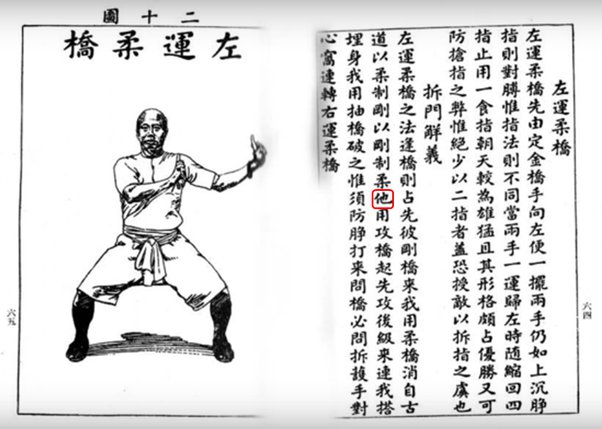 左運柔橋
左運柔橋先由定金橋手向左便一擺兩手仍如上沉睜
指則對膊惟指法則不同當兩手一運歸左時隨縮回四
指止用一食指朝天較為雄猛且其形格頗占優勝又可
防搶指之弊惟絕少以二指者蓋恐授敵以拆指之虞也
拆門觧義
左運柔橋之法逢橋則占先彼剛橋來我用柔橋消自古
道以柔制剛以剛制柔他用攻橋起先攻後級來連我搭
埋身我用抽橋破之惟須防睜打來問橋必問拆護手對
心窩連轉右運柔橋
六四
二十圖
左運柔橋
六五